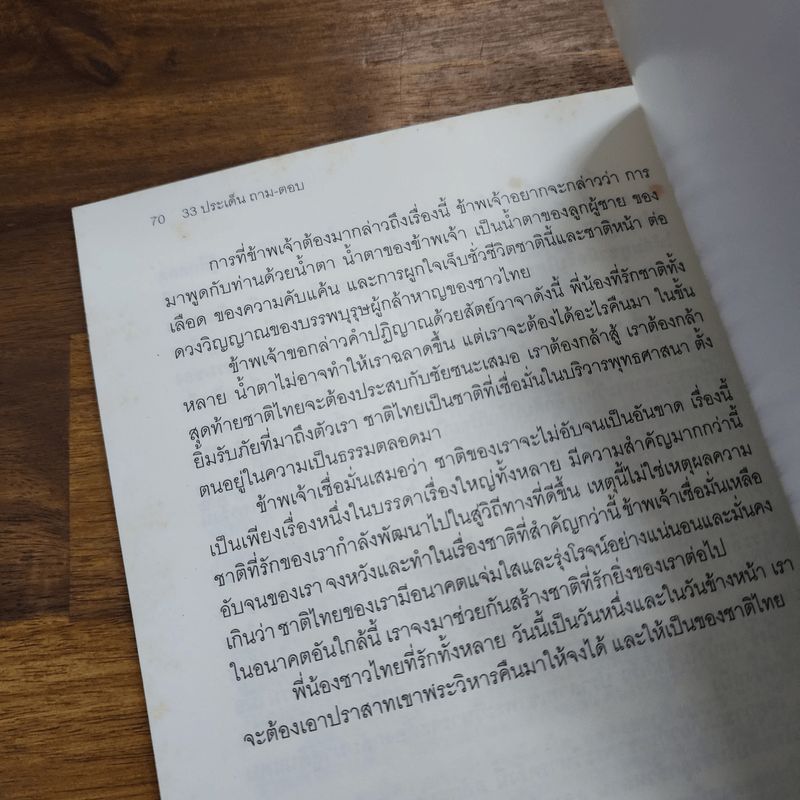 70 33 ประเด็น ถาม-ตอบ
การที่ข้าพเจ้าต้องมากล่าวถึงเรื่องนี้ ข้าพเจ้าอยากจะกล่าวว่า การ
มาพูดกับท่านด้วยน้ำตา น้ำตาของข้าพเจ้า เป็นน้ำตาของลูกผู้ชาย ของ
เลือด ของความคับแค้น และการผูกใจเจ็บชั่วชีวิตชาตินี้และชาติหน้า ต่อ
ดวงวิญญาณของบรรพบุรุษผู้กล้าหาญของชาวไทย
ข้าพเจ้าขอกล่าวคำปฏิญาณด้วยสัตย์วาจาดังนี้ พี่น้องที่รักชาติทั้ง
หลาย น้ำตาไม่อาจทำให้เราฉลาดขึ้น แต่เราจะต้องได้อะไรคืนมา ในขั้น
สุดท้ายชาติไทยจะต้องประสบกับชัยชนะเสมอ เราต้องกล้าสู้ เราต้องกล้า
ยิ้มรับภัยที่มาถึงตัวเรา ชาติไทยเป็นชาติที่เชื่อมั่นในบริวารพุทธศาสนา ตั้ง
ตนอยู่ในความเป็นธรรมตลอดมา
ข้าพเจ้าเชื่อมั่นเสมอว่า ชาติของเราจะไม่อับจนเป็นอันขาด เรื่องนี้
เป็นเพียงเรื่องหนึ่งในบรรดาเรื่องใหญ่ทั้งหลาย มีความสำคัญมากกว่านี้
ชาติที่รักของเรากำลังพัฒนาไปในสู่วิถีทางที่ดีขึ้น เหตุนี้ไม่ใช่เหตุผลความ
อับจนของเรา จงหวังและทำในเรื่องชาติที่สำคัญกว่านี้ ข้าพเจ้าเชื่อมั่นเหลือ
เกินว่า ชาติไทยของเรามีอนาคตแจ่มใสและรุ่งโรจน์อย่างแน่นอนและมั่นคง
ในอนาคตอันใกล้นี้ เราจงมาช่วยกันสร้างชาติที่รักยิ่งของเราต่อไป
พี่น้องชาวไทยที่รักทั้งหลาย วันนี้เป็นวันหนึ่งและในวันข้างหน้า เรา
จะต้องเอาปราสาทเขาพระวิหารคืนมาให้จงได้ และให้เป็นของชาติไทย